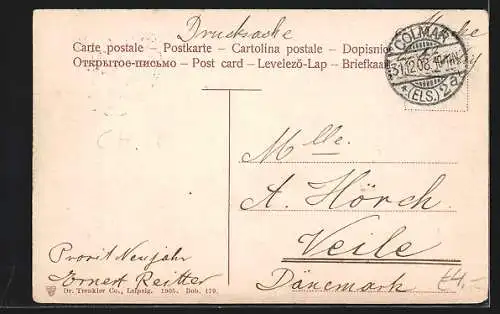 Drucksache
Carte postale – Postkarte – Cartolina postale – Dopisnic
Открытое-письмо – Post card – Levelező-Lap – Briefkaa
COLMAR
31.12.06.
*(ELS.)2a
Mlle.
A. Hörch.
Veile
Dänemark
Prosit Neujahr
Ernest Reitter
Dr. Trenkler Co., Leipzig. 1905. Dob. 179.